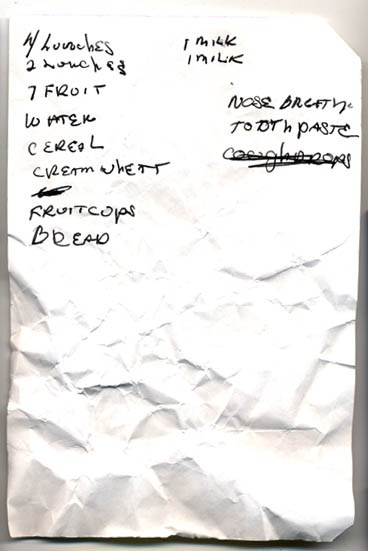 4 LOUNCHES
2 LOUNCHES
7 FRUIT
WATER
CEREAL
CREAM WHETT
FRUITCUPS
BREAD
1 MILK
1 MILK
NOSE BREATHE
TOOTHPASTE
COUGHDROPS